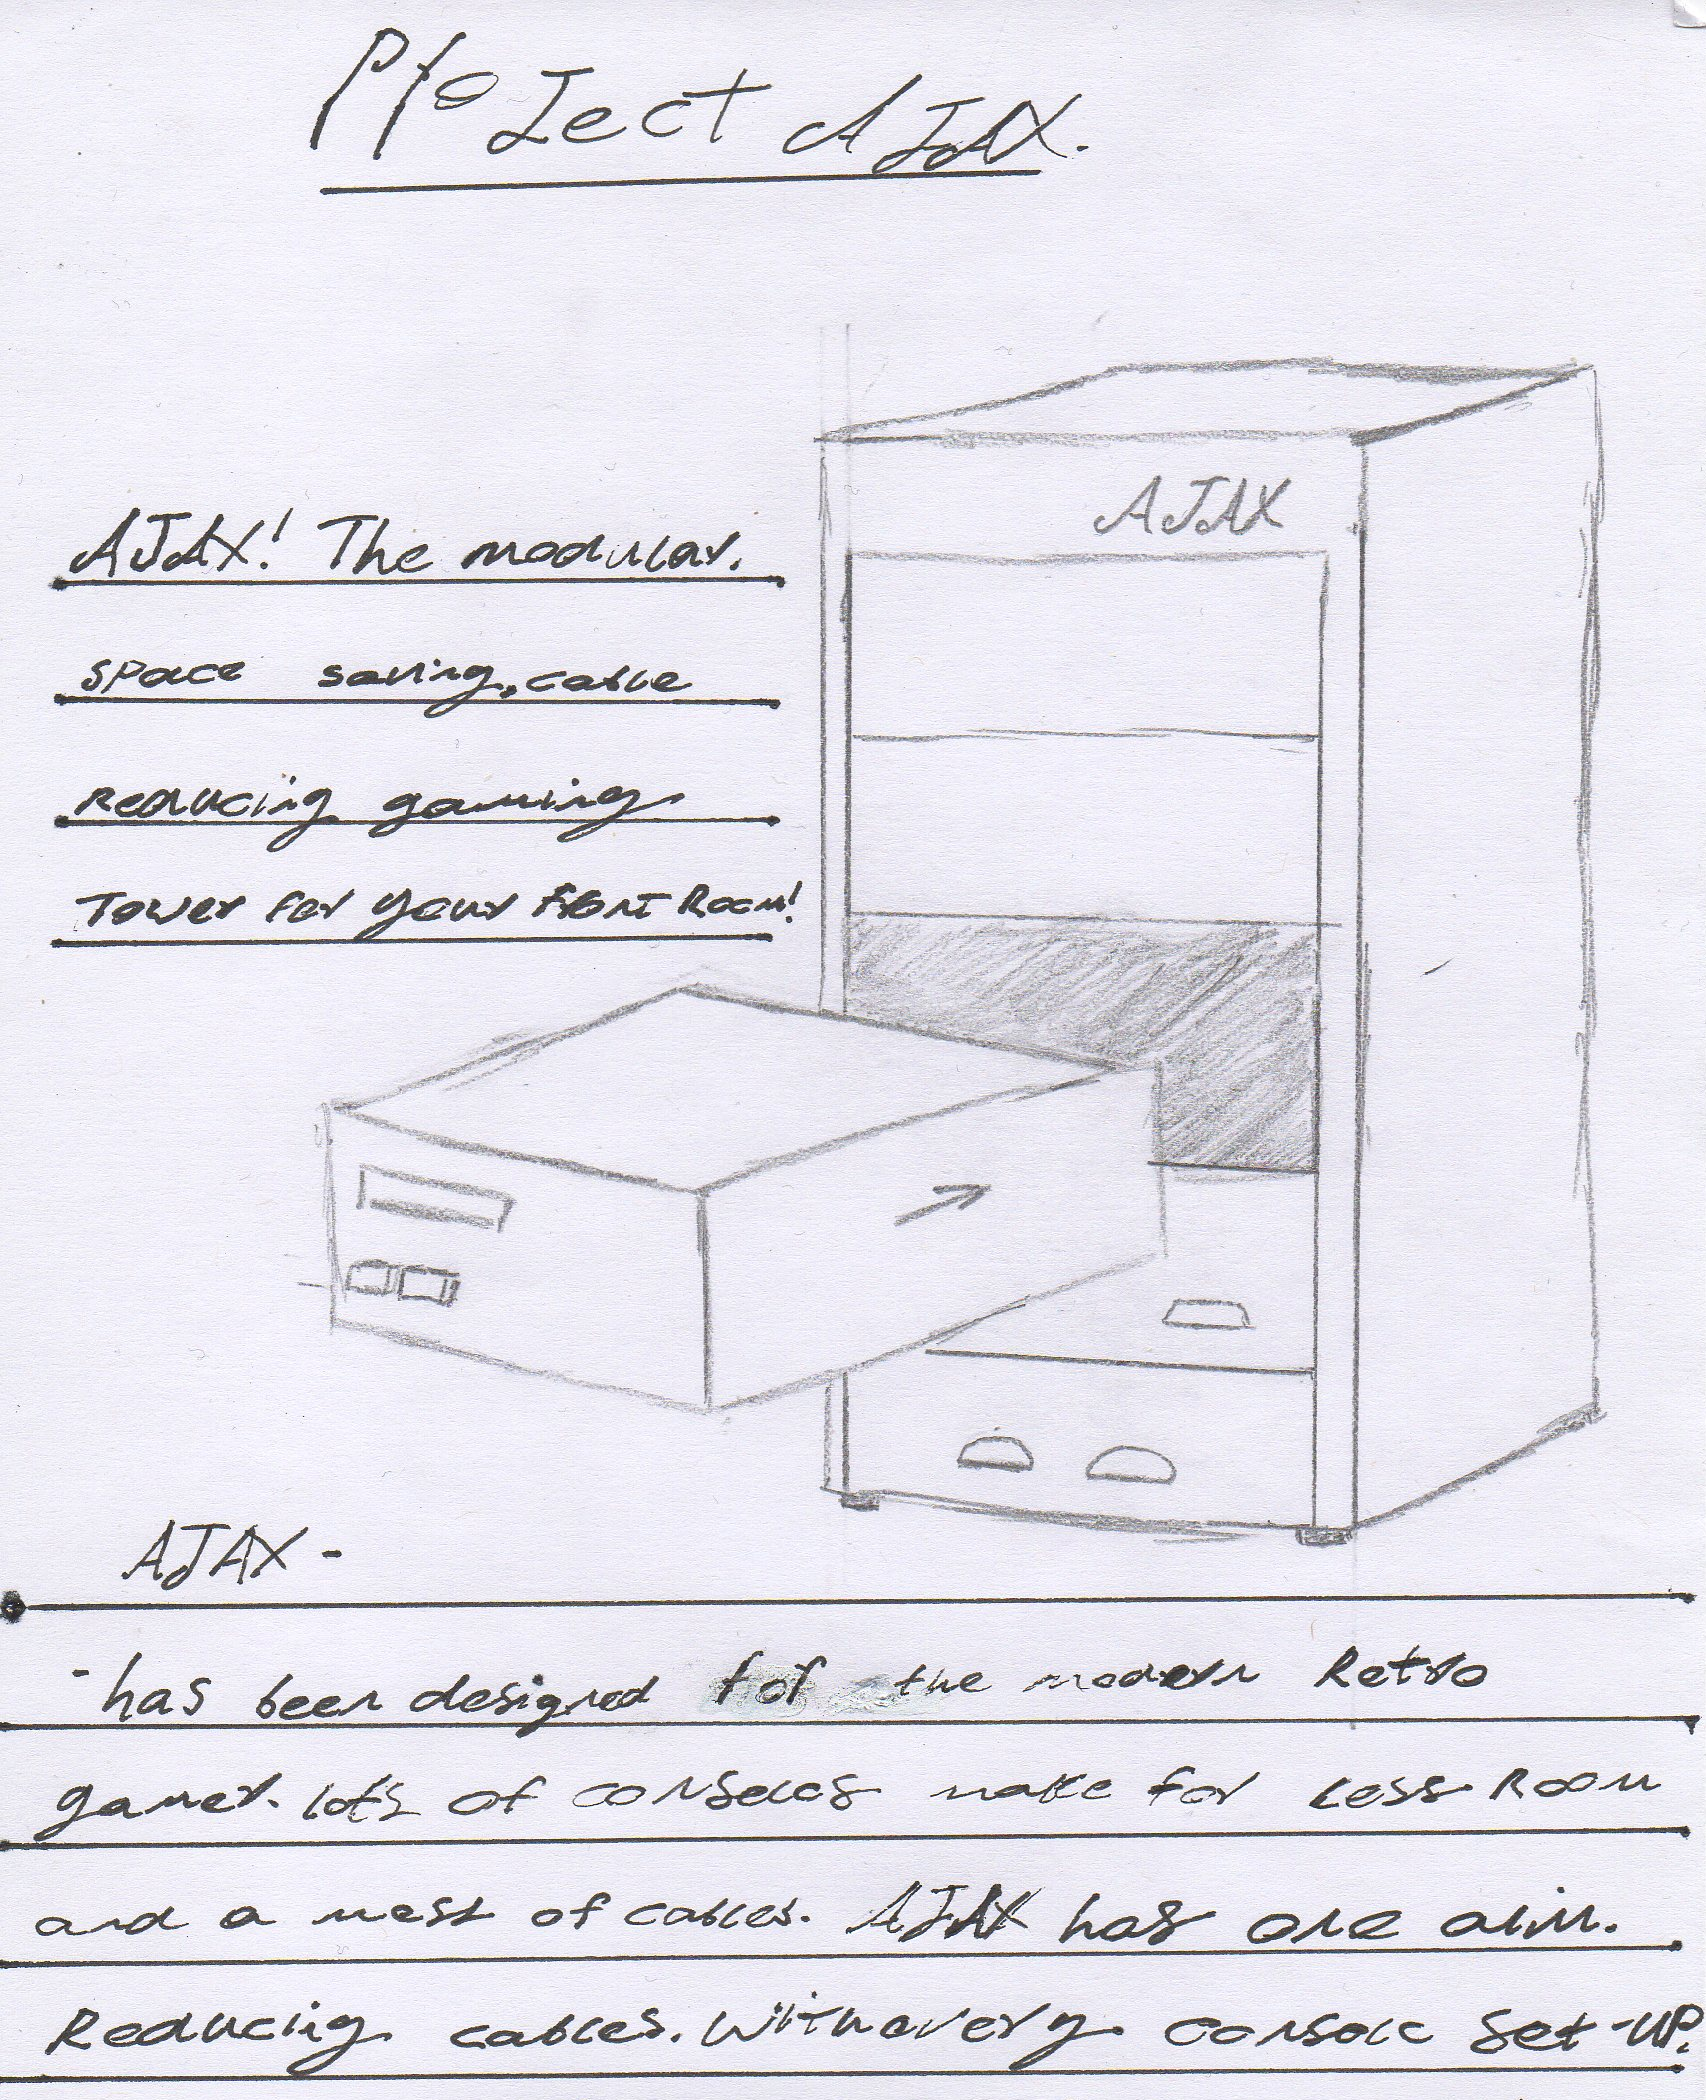 Project AJAX.
AJAX
AJAX! The modular.
space saving, cable
Reducing gaming
Tower for your front Room!
AJAX -
- has been designed for the modern Retro
gamer. lots of consoles make for less Room
and a mess of cables. AJAX has one aim.
Reducing cables. With every console set-up.